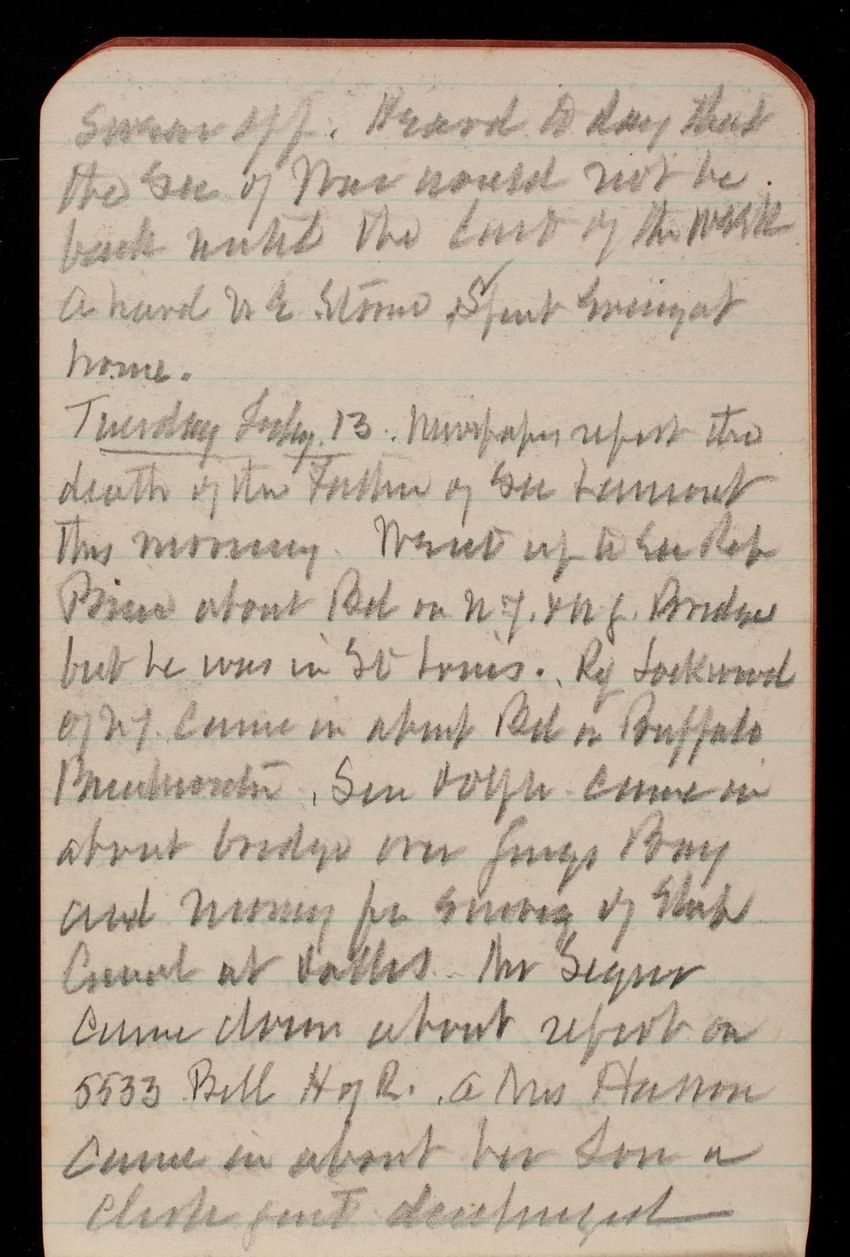 swear off. Heard to day that
the Sec of War would not be
back until the last of the week
a hard N E Storm. Spent Evening at
home.
Tuesday Feby 13. Newspapers report the
death of the Father of Sec Lamont
this morning. Went up to See Rep
Price about Bill on N.Y. & N J. Bridge
but he was in St Louis. Rep Lockwood
of N.Y. Came in about Bill on Buffalo
Breakwater. Sen Dolph came in
about bridge over Youngs Bay
and money for Survey of Ship
Canal at Dalles. Mr Seguer
came down about report on
5533 Bill H of R. a Mrs
came in about her Son a
Clerk just discharged